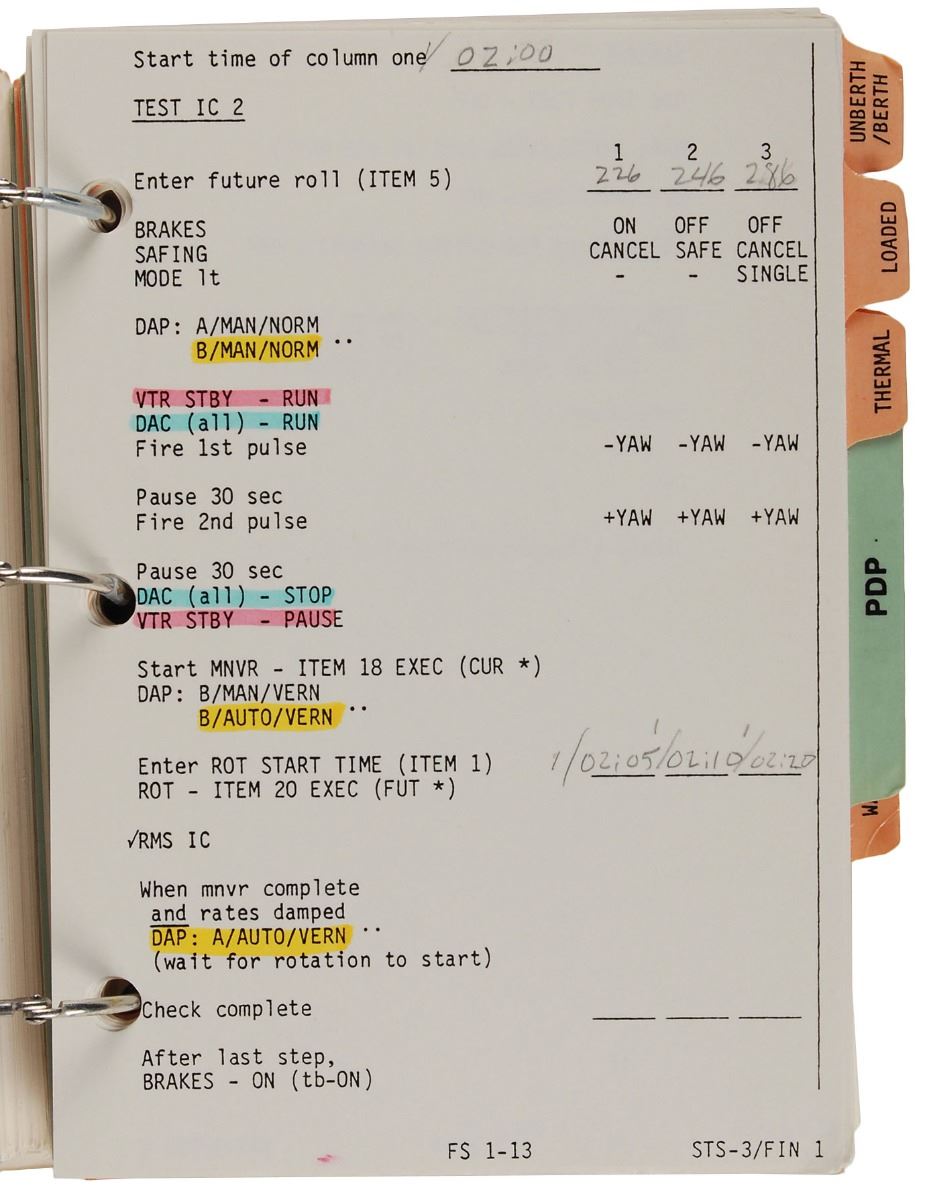 Start time of column one/ 02:00
TEST IC 2
1 2 3
Enter future roll (ITEM 5) 226 246 286
BRAKES ON OFF OFF
SAFING CANCEL SAFE CANCEL
MODE lt - - SINGLE
DAP: A/MAN/NORM
B/MAN/NORM ..
VTR STBY - RUN
DAC (all) - RUN
Fire 1st pulse -YAW -YAW -YAW
Pause 30 sec
Fire 2nd pulse +YAW +YAW +YAW
Pause 30 sec
DAC (all) - STOP
VTR STBY - PAUSE
Start MNVR - ITEM 18 EXEC (CUR *)
DAP: B/MAN/VERN
B/AUTO/VERN ..
Enter ROT START TIME (ITEM 1) 1/02:05/02:10/02:20
ROT - ITEM 20 EXEC (FUT *)
√RMS IC
When mnvr complete
and rates damped
DAP: A/AUTO/VERN ..
(wait for rotation to start)
Check complete
After last step,
BRAKES - ON (tb-ON)
FS 1-13 STS-3/FIN 1
UNBERTH
/BERTH
LOADED
THERMAL
PDP